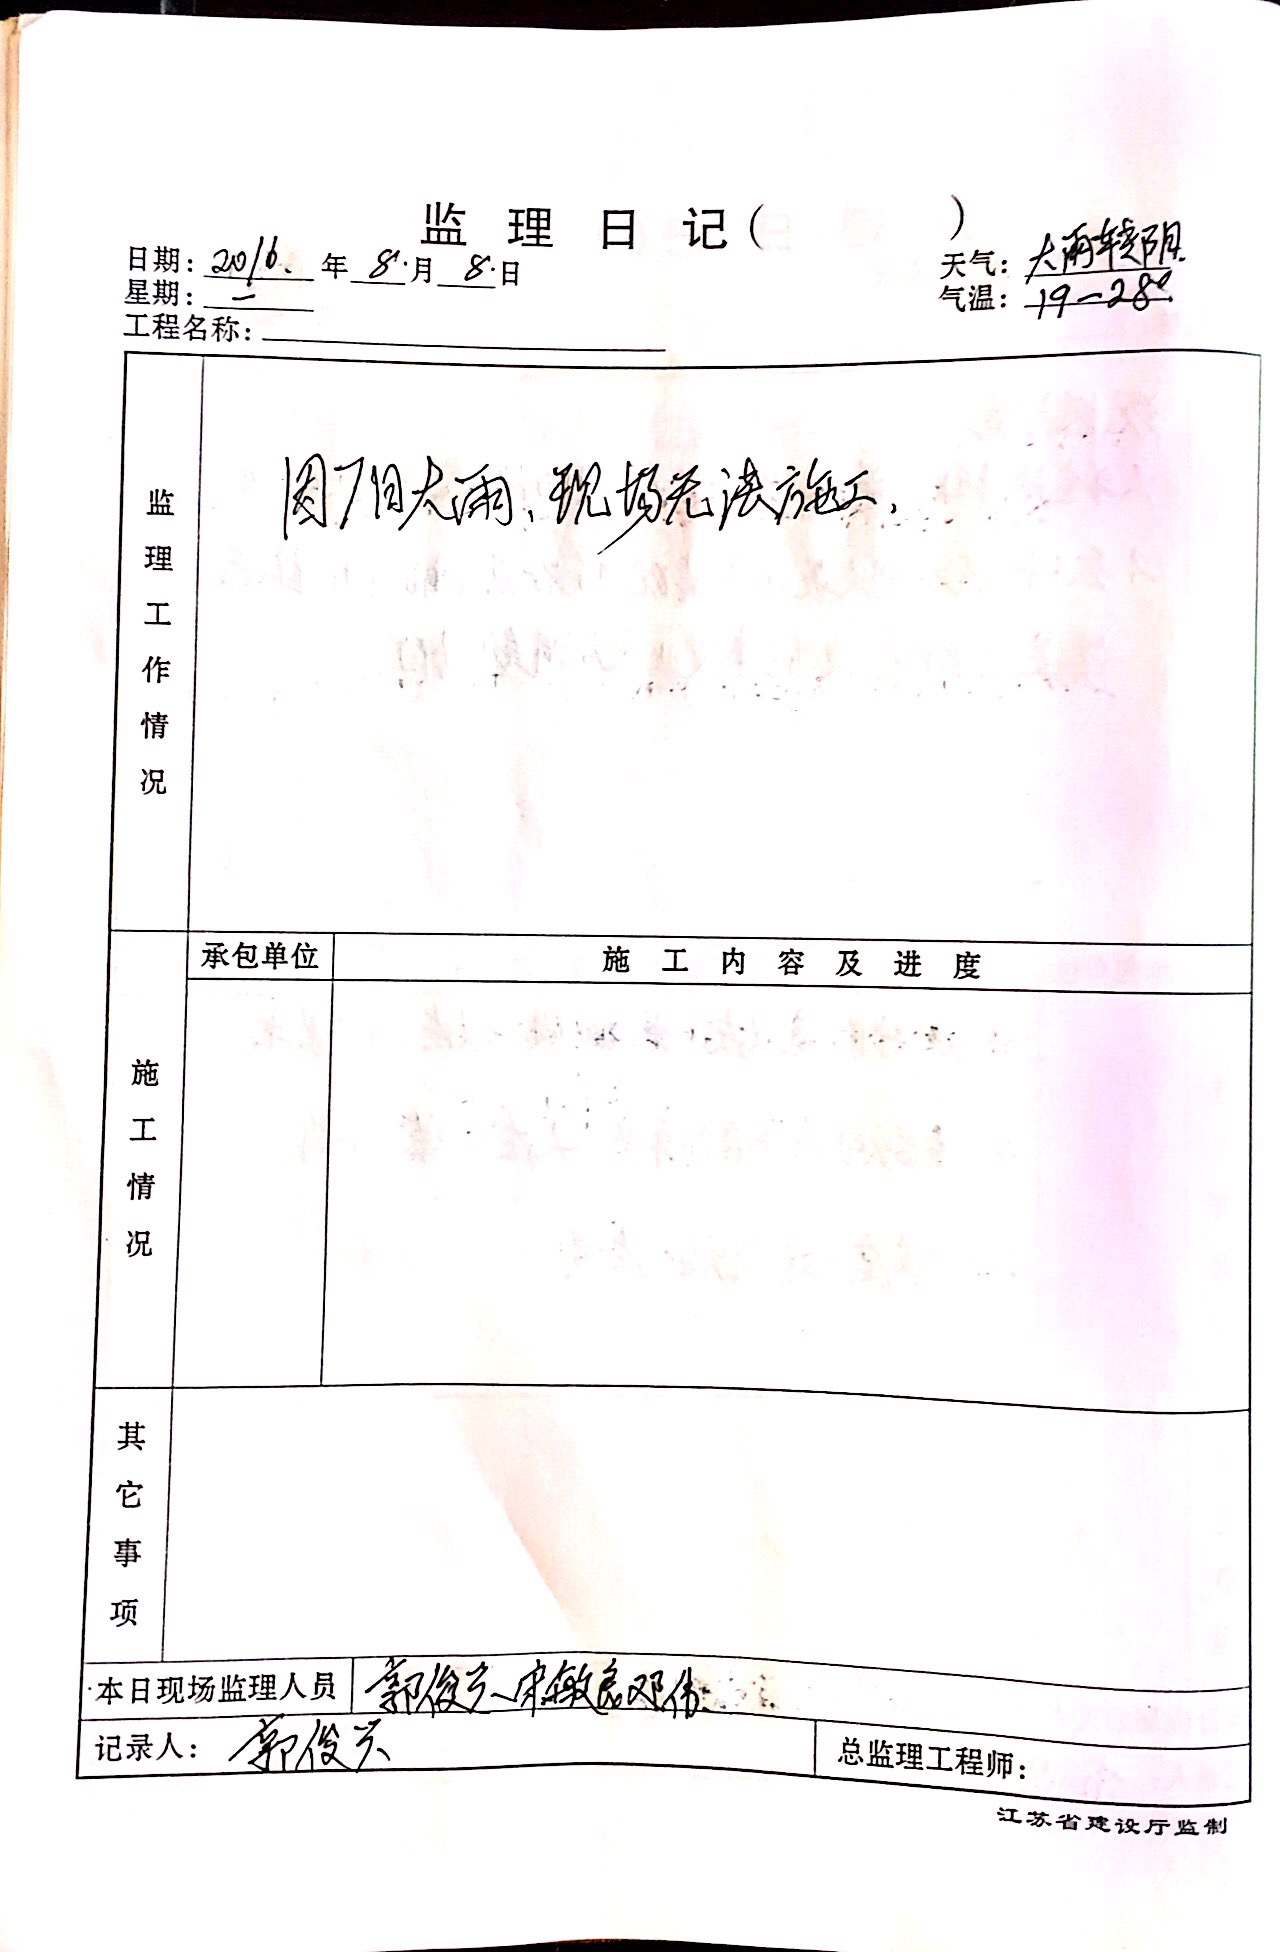 监理日记（ ）
日期：2016.年8.月8.日
天气：大雨转阴
星期：一
气温：19-28°
工程名称：
监理工作情况
因7日大雨、现场无法施工.
承包单位
施工内容及进度
施工情况
其它事项
本日现场监理人员
郭俊兴、宋敏良、邓伟
记录人：郭俊兴
总监理工程师：
江苏省建设厅监制